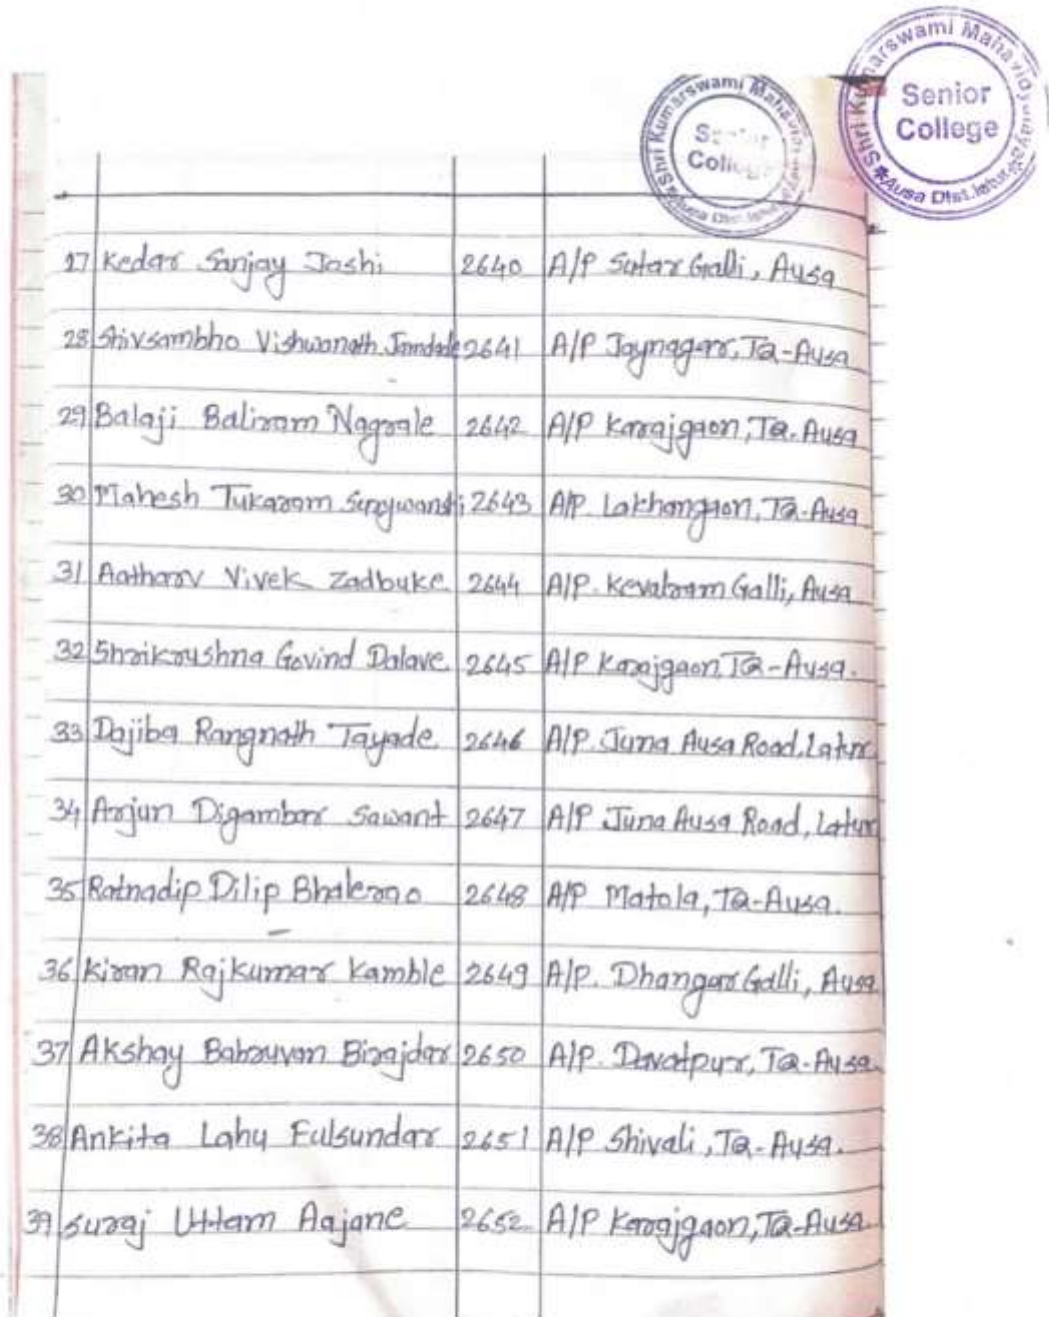 Shri Kumarswami Mahavidyalaya
Senior
College
Ausa Dist. latur
Shri Kumarswami
Senior
College
Ausa Dist. latur
27 Kedar Sanjay Joshi 2640 A/P Sutar Galli, Ausa
28 Shivsambho Vishwanath 2641 A/P Jaynagar, TQ-Ausa
29 Balaji Baliram Nagrale 2642 A/P Karajgaon, TQ-Ausa
30 Mahesh Tukaram Suryawanshi 2643 A/P. Lakhangaon, TQ-Ausa
31 Aatharv Vivek Zadbuke 2644 A/P. Kevalram Galli, Ausa
32 Shrikrushna Govind Dalave 2645 A/P Karajgaon, TQ-Ausa.
33 Dajiba Rangnath Tayade 2646 A/P. Juna Ausa Road, Latur
34 Arjun Digambar Sawant 2647 A/P Juna Ausa Road, Latur
35 Ratnadip Dilip Bhalerao 2648 A/P Matola, TQ-Ausa.
36 Kiran Rajkumar Kamble 2649 A/P. Dhangar Galli, Ausa
37 Akshay Babruvan Birajdar 2650 A/P. Davatpur, TQ-Ausa.
38 Ankita Lahu Fulsundar 2651 A/P Shivali, TQ-Ausa.
39 Suraj Uttam Aajane 2652 A/P Karajgaon, TQ-Ausa.